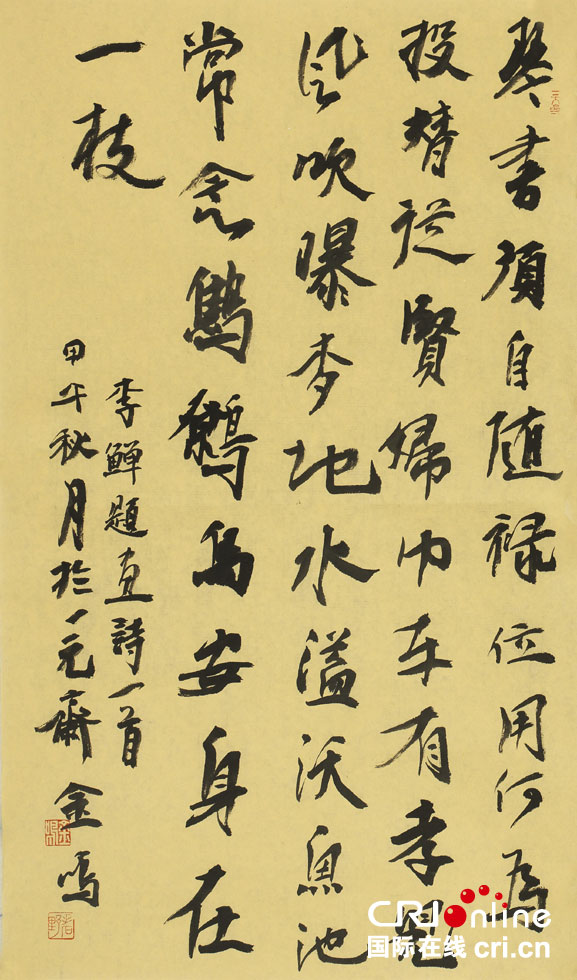 琴書須自隨禄位用何為
投簪從賢婦巾车有孝兒
風吹曝麥地水溢沃魚池
常念鷦鷯鳥安身在
一枝
李鱓題畫詩一首
甲午秋月於一元齋金鳴
CRI online
国际在线 cri.cn